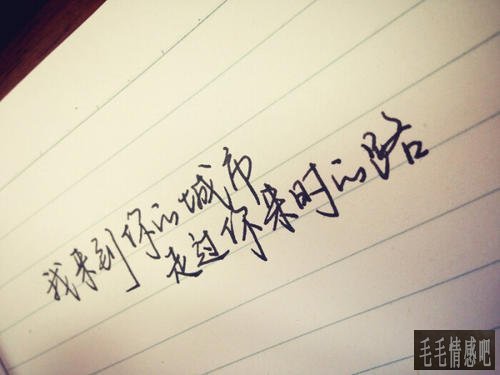 我来到你的城市
走过你来时的路
毛毛情感吧